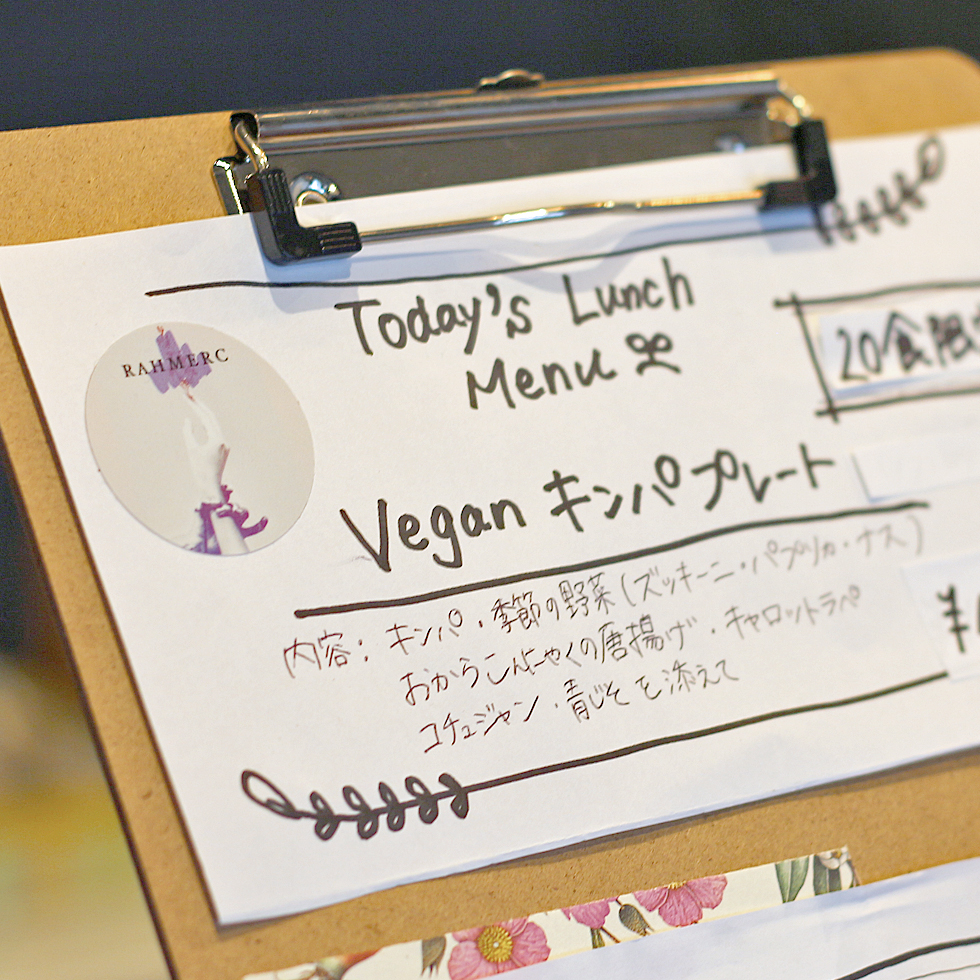 RAHMERC
Today's Lunch
Menu
20食限
Vegan キンパプレート
内容: キンパ・季節の野菜(ズッキーニ・パプリカ・ナス)
おからこんにゃくの唐揚げ・キャロットラペ
コチュジャン・青じそを添えて
¥